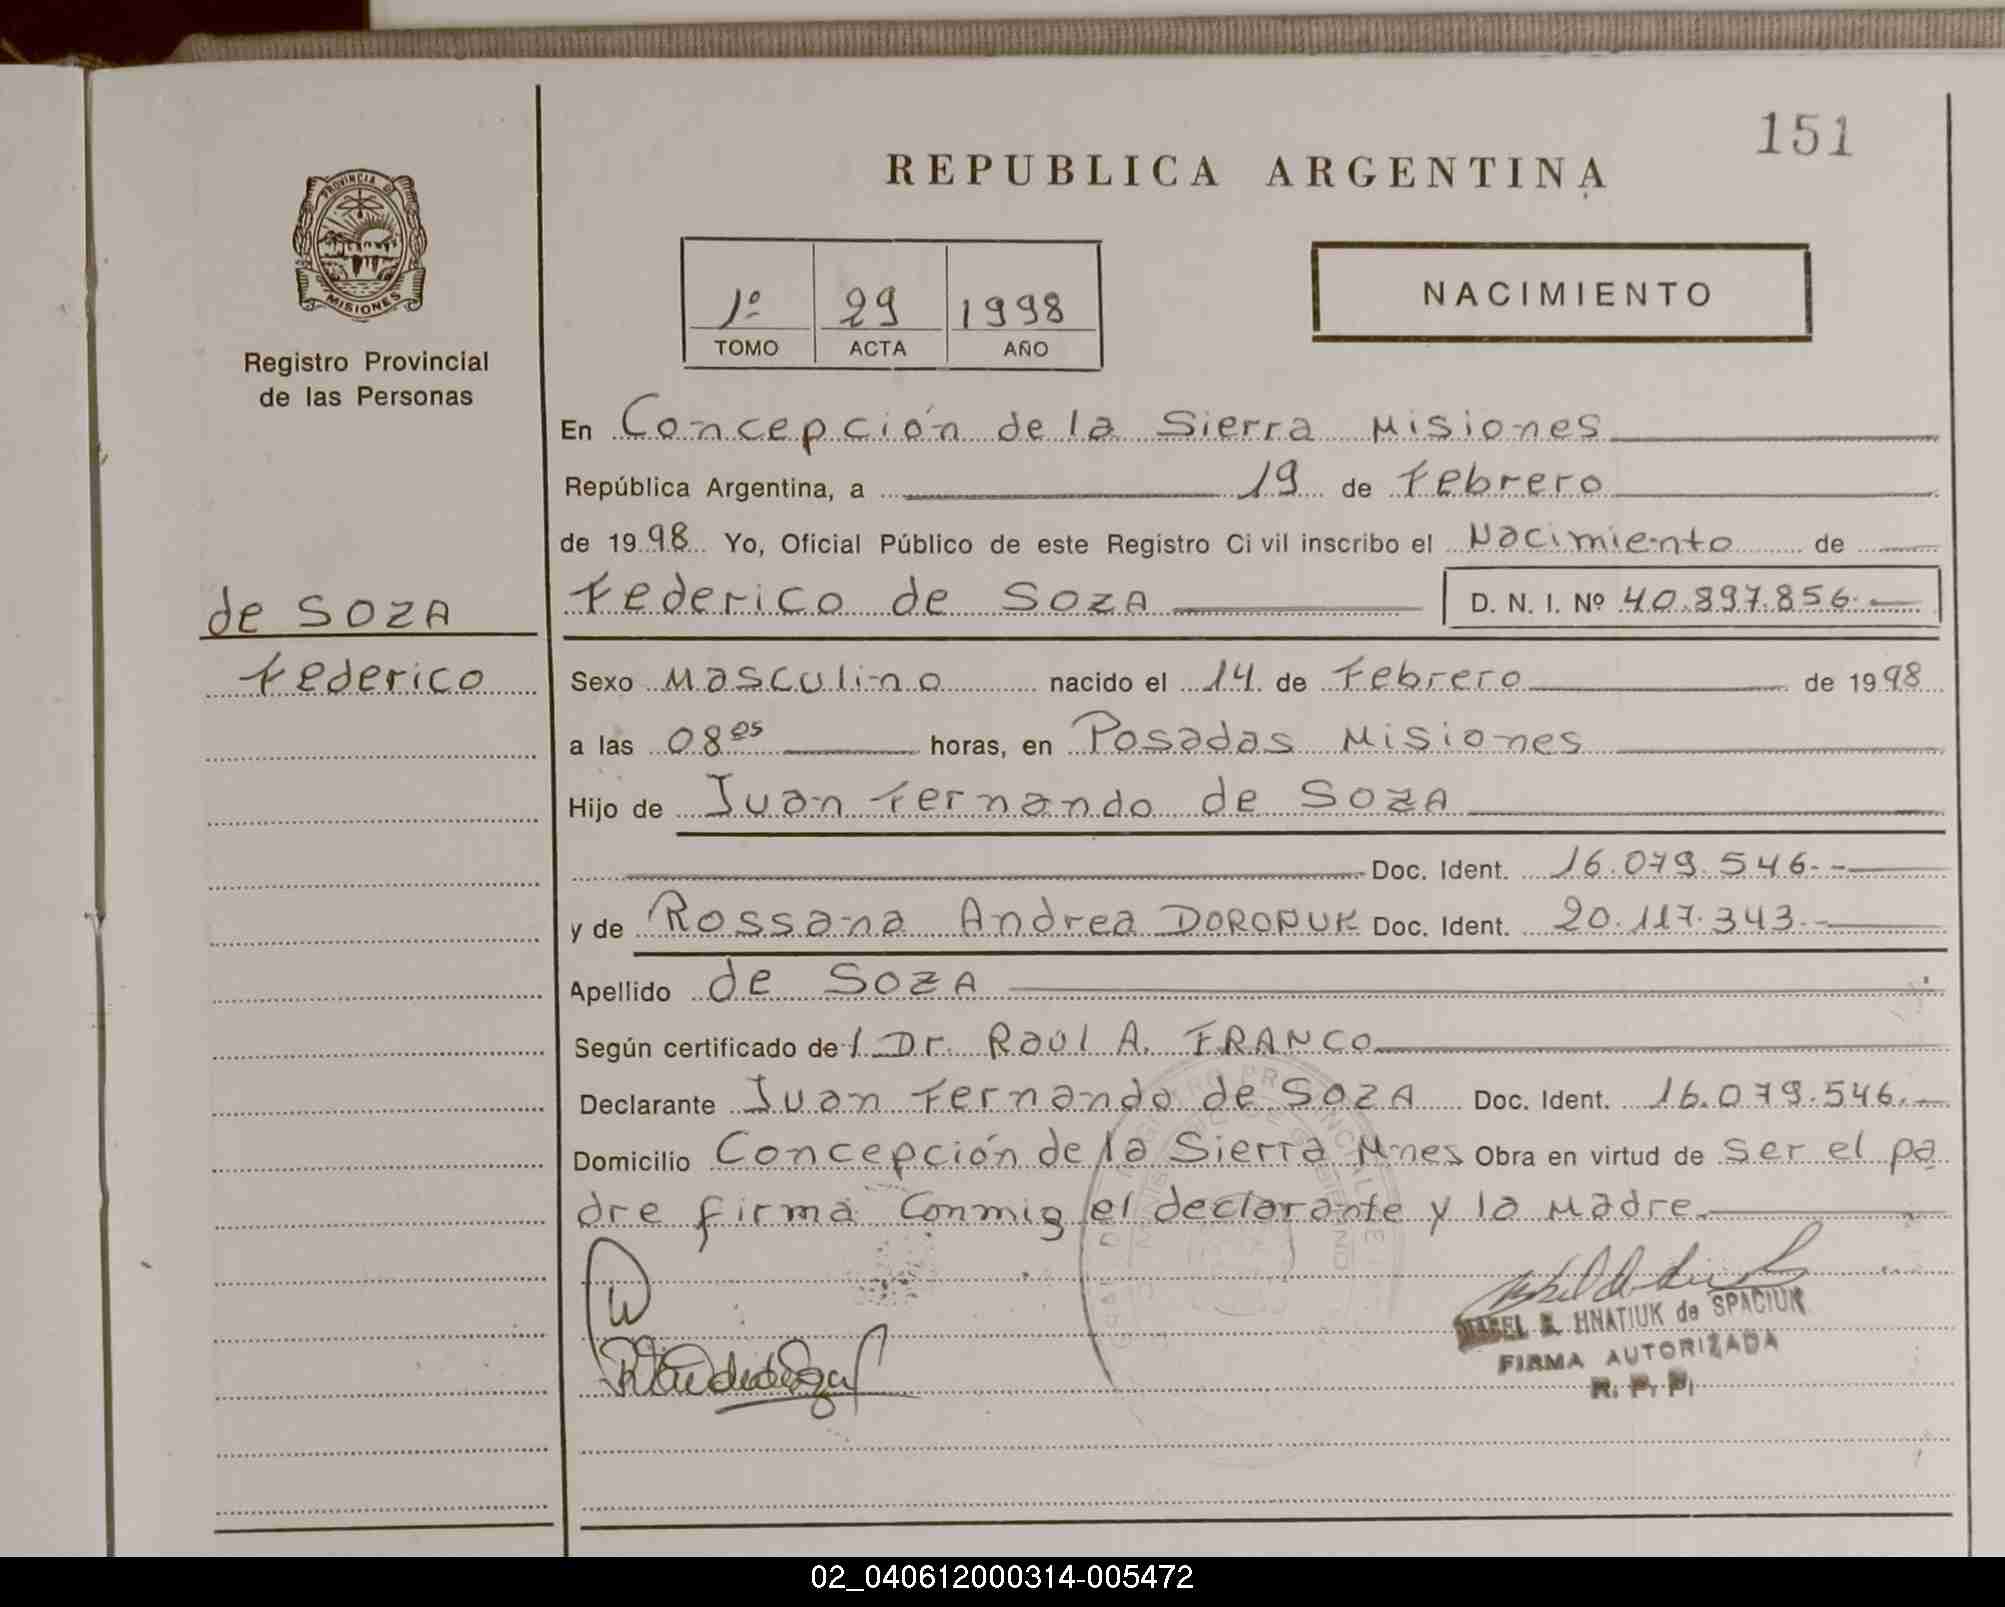 151
REPUBLICA ARGENTINA
PROVINCIA DE
MISIONES
Registro Provincial
de las Personas
1º 29 1998
TOMO ACTA AÑO
NACIMIENTO
En Concepción de la Sierra Misiones
República Argentina, a 19 de Febrero
de 1998 Yo, Oficial Público de este Registro Civil inscribo el Nacimiento de
de SOZA
Federico
Federico de SOZA D. N. I. Nº 40.897.856.-
Sexo Masculino nacido el 14 de Febrero de 1998
a las 08 05 horas, en Posadas Misiones
Hijo de Juan Fernando de SOZA
Doc. Ident. 16.079.546.-
y de Rossana Andrea DORONUK Doc. Ident. 20.117.343.-
Apellido de SOZA
Según certificado del Dr. Raúl A. FRANCO
Declarante Juan Fernando de SOZA Doc. Ident. 16.079.546.-
Domicilio Concepción de la Sierra Mnes Obra en virtud de ser el pa
dre firma conmig el declarante y la Madre
HNATIUK de SPACIUK
FIRMA AUTORIZADA
R. P. P.
02_040612000314-005472